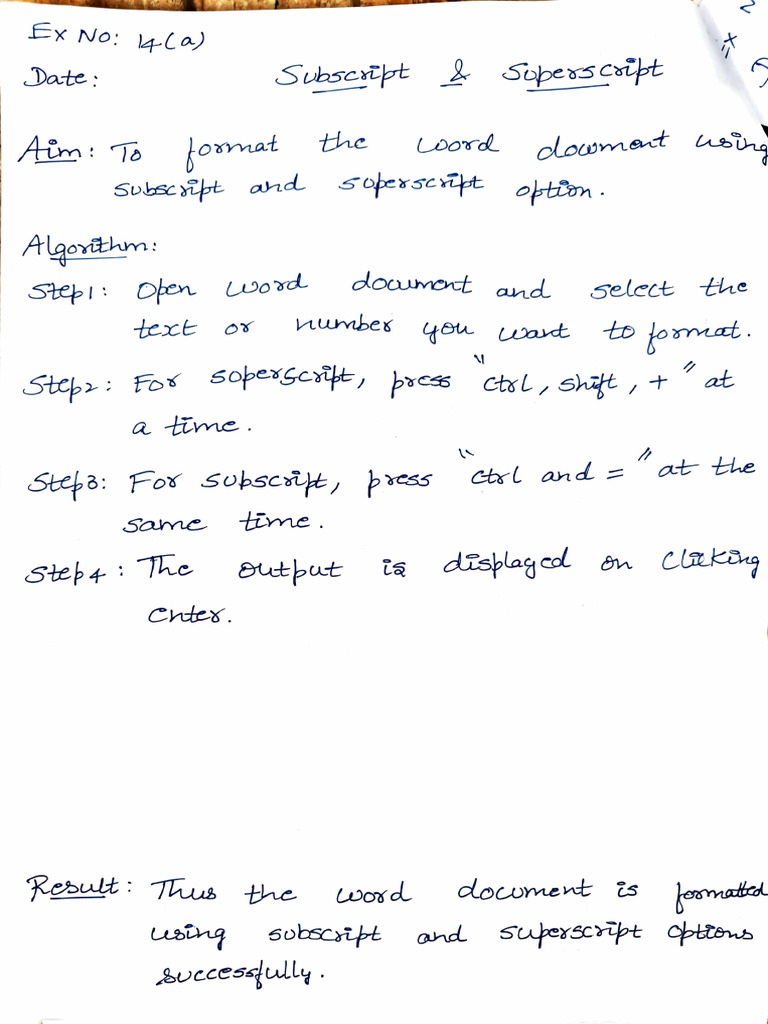 Ex No: 14(a)
Date: Subscript & Superscript
Aim: To format the word document using
subscript and superscript option.
Algorithm:
Step1: Open word document and select the
text or number you want to format.
Step2: For superscript, press "ctrl, shift, +" at
a time.
Step3: For subscript, press "ctrl and =" at the
same time.
Step4: The output is displayed on clicking
enter.
Result: Thus the word document is formatted
using subscript and superscript options
successfully.